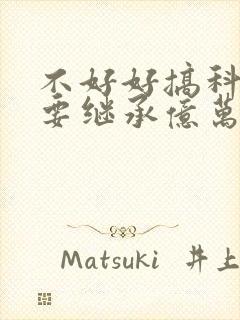 不好好搞科
要继承億萬
Matsuki 井上